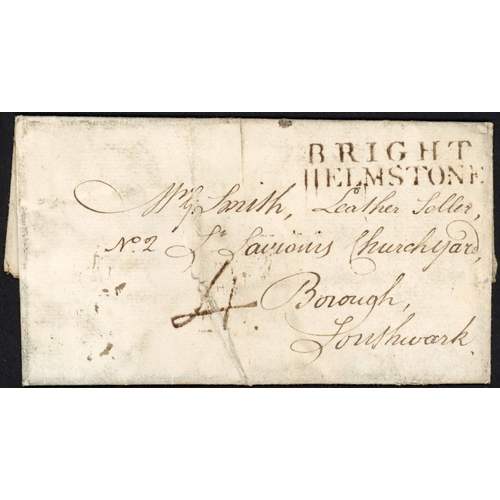 BRIGHT
HELMSTONE
Smith, Leather Seller,
No. 2 St. Saviours Church Yard,
4
Borough,
Southwark